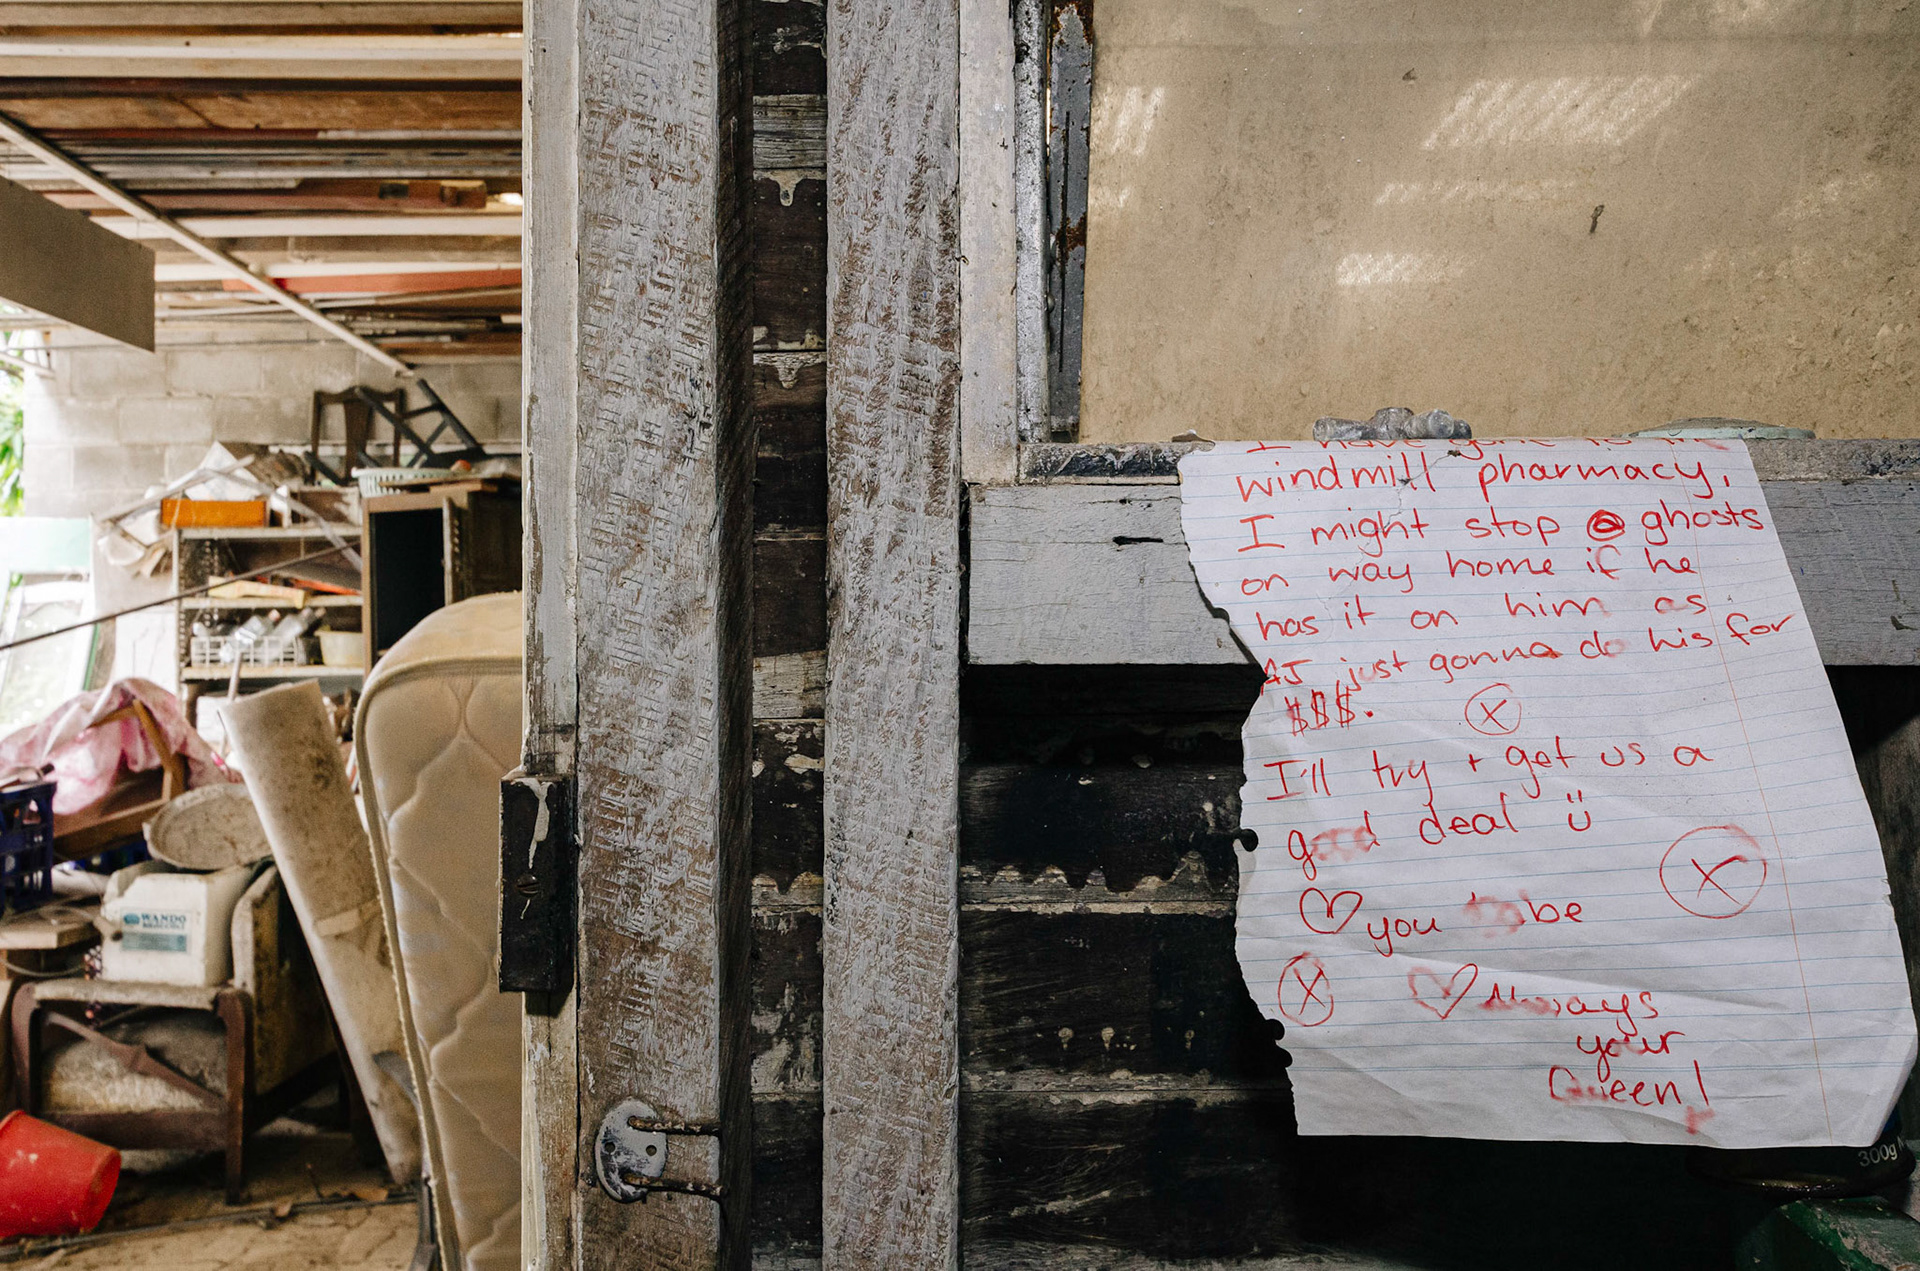 I have gone to the
windmill pharmacy,
I might stop @ ghosts
on way home if he
has it on him as
AJ just gonna do his for
$$$. ⓧ
I'll try + get us a
good deal ü
♡ you be ⓧ
ⓧ ♡ Always
your
Queen!
WANDO
300g